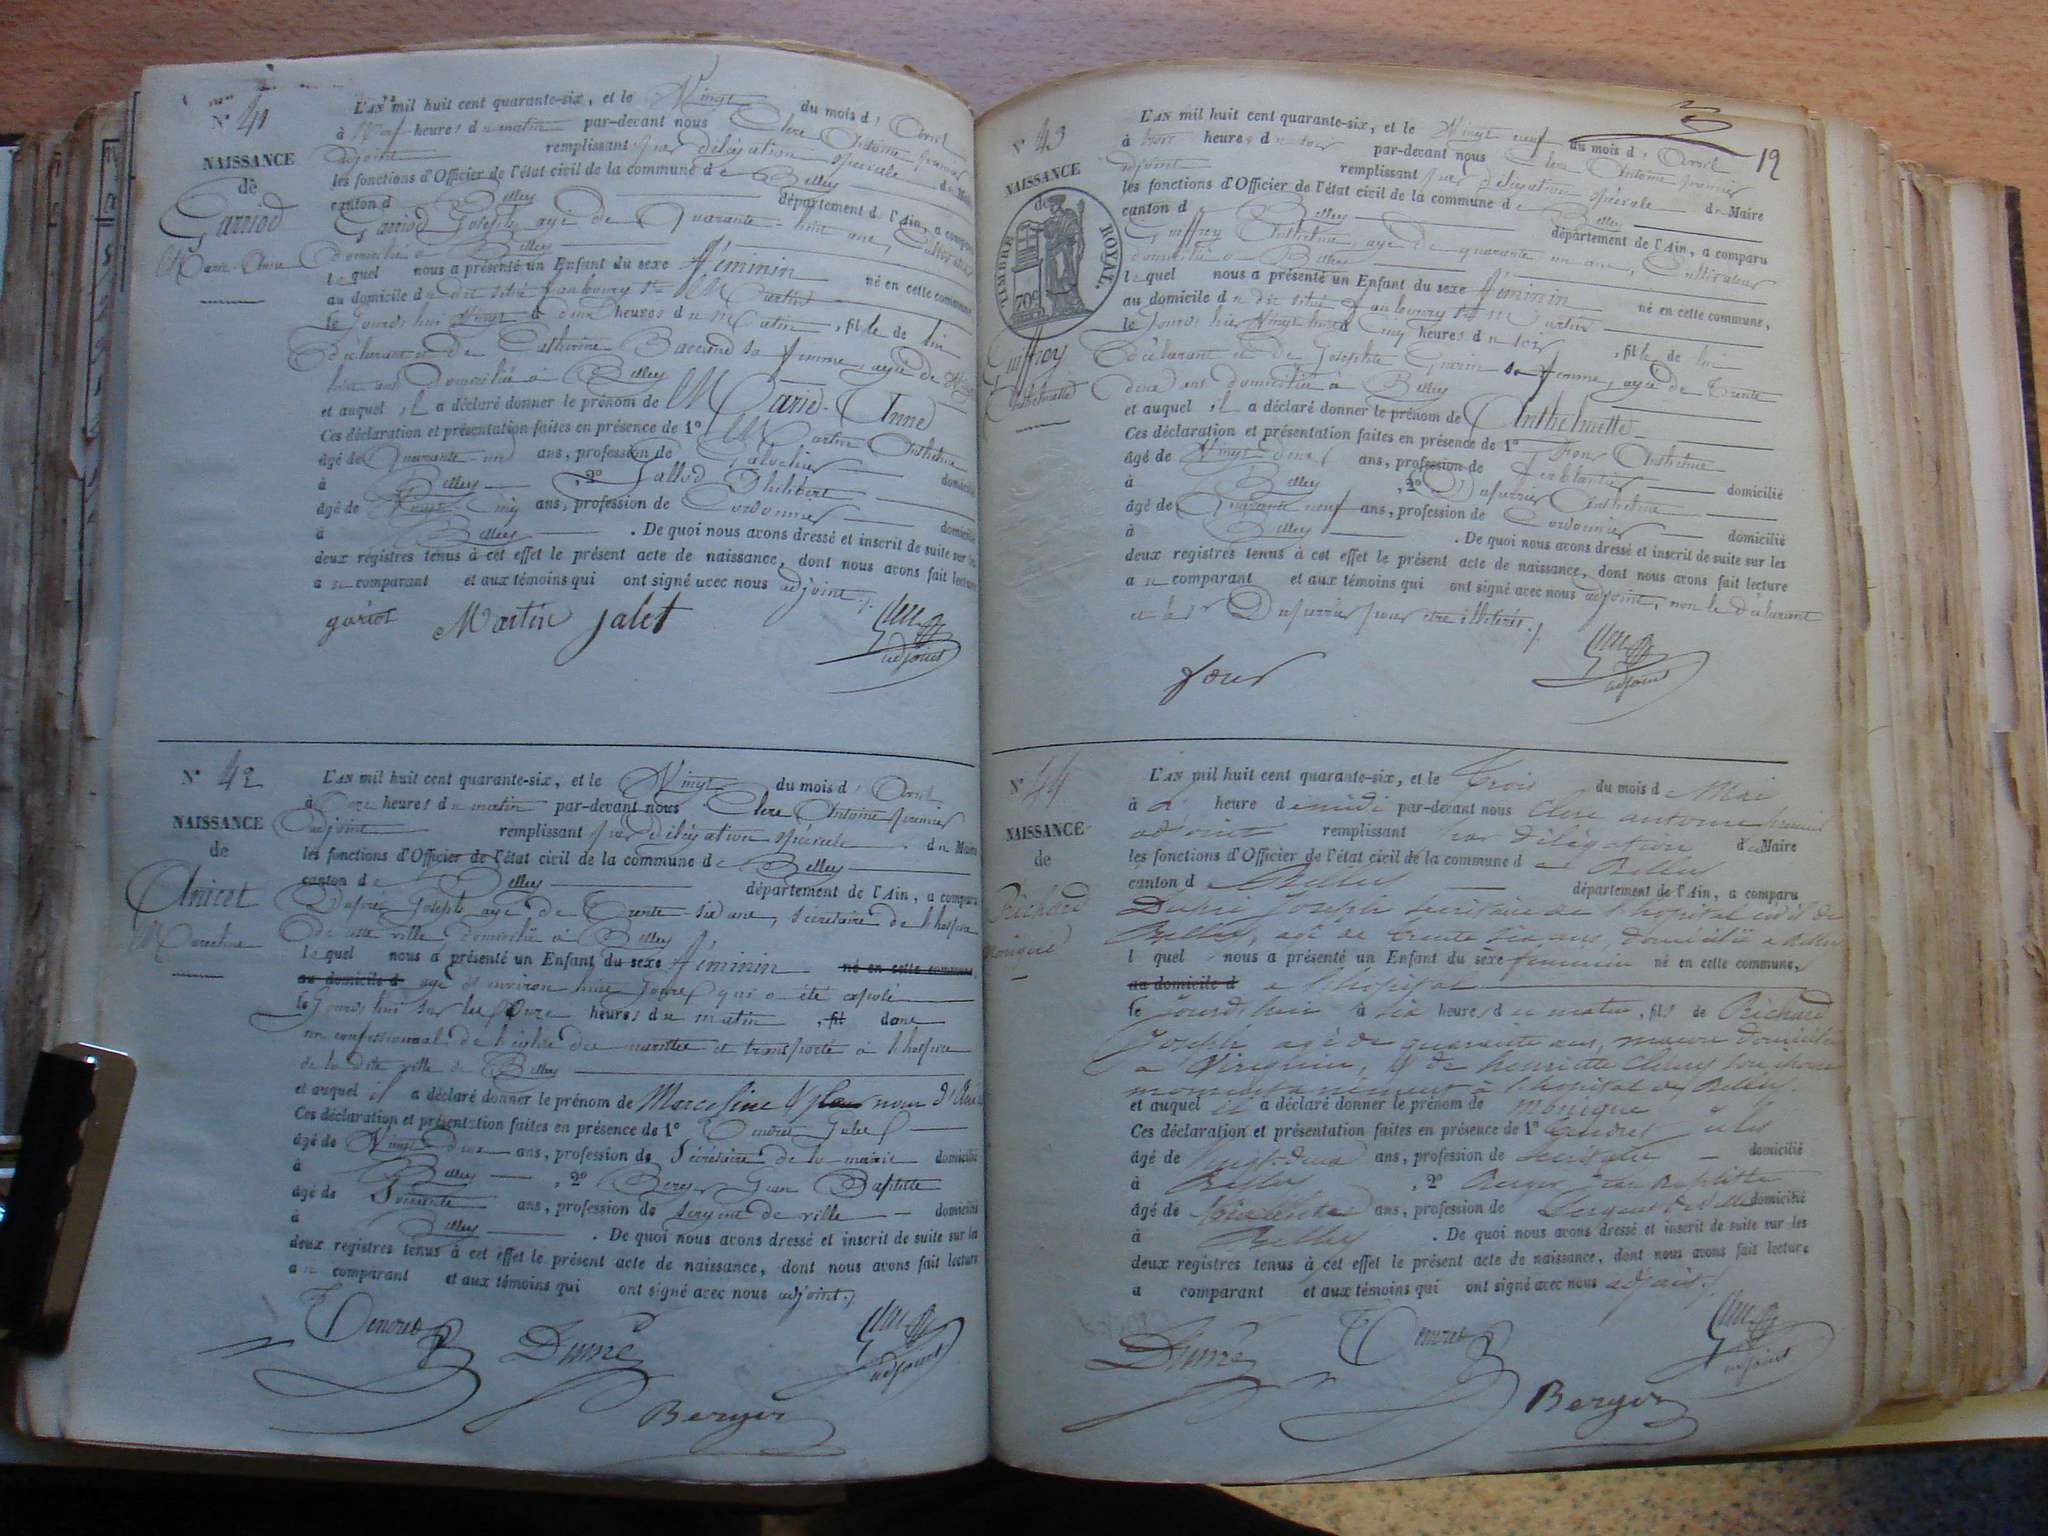 N° 41
NAISSANCE
de
Garriod
Marie-Anne
L'AN mil huit cent quarante-six, et le Vingt du mois d'Avril
à Neuf heures du matin par-devant nous Clerc Antoine premier
adjoint remplissant par délégation spéciale du Maire
les fonctions d'Officier de l'état civil de la commune de Belley
canton de Belley département de l'Ain, a comparu
Garriod Joseph, âgé de Quarante-huit ans, Cultivateur
domicilié à Belley
lequel nous a présenté un Enfant du sexe féminin né en cette commune,
au domicile du dit situé faubourg St Martin
le Jourd'hui Vingt à deux heures du Matin, fille de lui
déclarant et de Catherine sa femme, agée de
huit ans domiciliée à Belley
et auquel il a déclaré donner le prénom de Marie-Anne
Ces déclaration et présentation faites en présence de 1° Martin Anthelme
âgé de Quarante un ans, profession de Galochier domicilié
à Belley, 2° Jallod Philibert
âgé de Vingt cinq ans, profession de Cordonnier domicilié
à Belley. De quoi nous avons dressé et inscrit de suite sur les
deux registres tenus à cet effet le présent acte de naissance, dont nous avons fait lecture
au comparant et aux témoins qui ont signé avec nous adjoint./.
gariot Martin jalet Clerc
adjoint
N° 42
NAISSANCE
de
Anicet
Marceline
L'AN mil huit cent quarante-six, et le Vingt du mois d'Avril
à Onze heures du matin par-devant nous Clerc Antoine premier
adjoint remplissant par délégation spéciale du Maire
les fonctions d'Officier de l'état civil de la commune de Belley
canton de Belley département de l'Ain, a comparu
Dupré Joseph, agé de Trente-six ans, secrétaire de l'hospice
de cette ville, domicilié à Belley
lequel nous a présenté un Enfant du sexe féminin né en cette commune,
au domicile d agé d'environ huit Jours qui a été exposé
le Jourd'hui sur les Onze heures du matin, fil dans
un confessionnal de l'église et transporté à l'hospice
de la dite ville de Belley
et auquel il a déclaré donner le prénom de Marceline & pour nom d'Anicet
Ces déclaration et présentation faites en présence de 1° Tendret Jules
âgé de Vingt deux ans, profession de Secrétaire de la mairie domicilié
à Belley, 2° Berger Jean Baptiste
âgé de Soixante ans, profession de sergent de ville domicilié
à Belley. De quoi nous avons dressé et inscrit de suite sur les
deux registres tenus à cet effet le présent acte de naissance, dont nous avons fait lecture
au comparant et aux témoins qui ont signé avec nous adjoint./.
Tendret Dupré Clerc
adjoint
Berger
12
N° 43
NAISSANCE
de
TIMBRE ROYAL.
70c
Guffroy
Anthelmette
L'AN mil huit cent quarante-six, et le Vingt neuf du mois d'Avril
à trois heures du soir par-devant nous Clerc Antoine premier
adjoint remplissant par délégation spéciale du Maire
les fonctions d'Officier de l'état civil de la commune de Belley
canton d Belley département de l'Ain, a comparu
Guffroy Anthelme, agé de quarante un ans, Cultivateur
domicilié à Belley
lequel nous a présenté un Enfant du sexe féminin né en cette commune,
au domicile du dit situé faubourg St Martin
le Jourd'hier Vingt huit à cinq heures du soir, fille de lui
déclarant et de Josephte Guerin sa femme, agée de Trente
deux ans domiciliée à Belley
et auquel il a déclaré donner le prénom de Anthelmette
Ces déclaration et présentation faites en présence de 1° Anthelme
âgé de Vingt deux ans, profession de ferblantier domicilié
à Belley, 2° Duperrier Anthelme
âgé de Quarante neuf ans, profession de Cordonnier domicilié
à Belley. De quoi nous avons dressé et inscrit de suite sur les
deux registres tenus à cet effet le présent acte de naissance, dont nous avons fait lecture
au comparant et aux témoins qui ont signé avec nous adjoint, non le déclarant
et le sr Duperrier pour être illiterés./.
Clerc
adjoint
N° 44
NAISSANCE
de
Richard
Monique
L'AN mil huit cent quarante-six, et le Trois du mois de Mai
à heure de midi par-devant nous Clerc antoine premier
adjoint remplissant par délégation du Maire
les fonctions d'Officier de l'état civil de la commune de Belley
canton de Belley département de l'Ain, a comparu
Dupré Joseph secrétaire de l'hopital civil de
Belley, agé de trente six ans, domicilié à Belley
l quel nous a présenté un Enfant du sexe feminin né en cette commune,
au domicile d à l'hopital
le jourd'hui à six heures du matin, fils de Richard
Joseph agé de quarante ans, domicilié
à Virignin, & de henriette son épouse
momentanément à l'hopital de Belley.
et auquel il a déclaré donner le prénom de Monique
Ces déclaration et présentation faites en présence de 1° Tendret Jules
âgé de vingt-deux ans, profession de secrétaire domicilié
à Belley, 2° Berger Jean Baptiste
âgé de Soixante ans, profession de Sergent de ville domicilié
à Belley. De quoi nous avons dressé et inscrit de suite sur les
deux registres tenus à cet effet le présent acte de naissance, dont nous avons fait lecture
a comparant et aux témoins qui ont signé avec nous adjoint./.
Dupré Tendret Clerc
adjoint
Berger